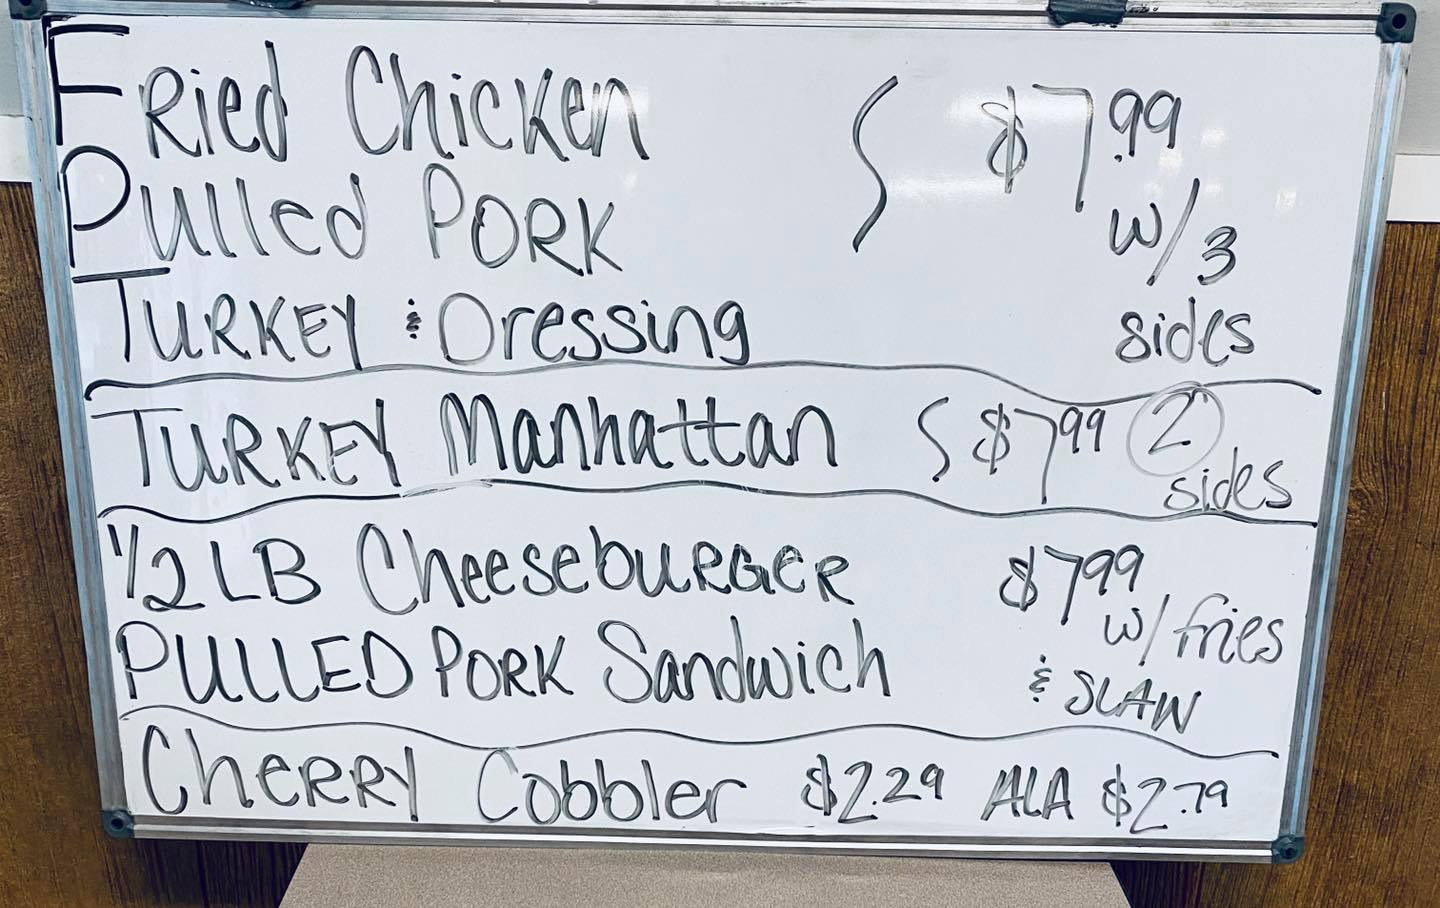 Fried Chicken $7.99
Pulled Pork w/3
Turkey & Dressing sides
Turkey Manhattan $799 2 sides
1/2 LB Cheeseburger $799 w/fries
PULLED PORK Sandwich & SLAW
Cherry Cobbler $2.29 ALA $2.79